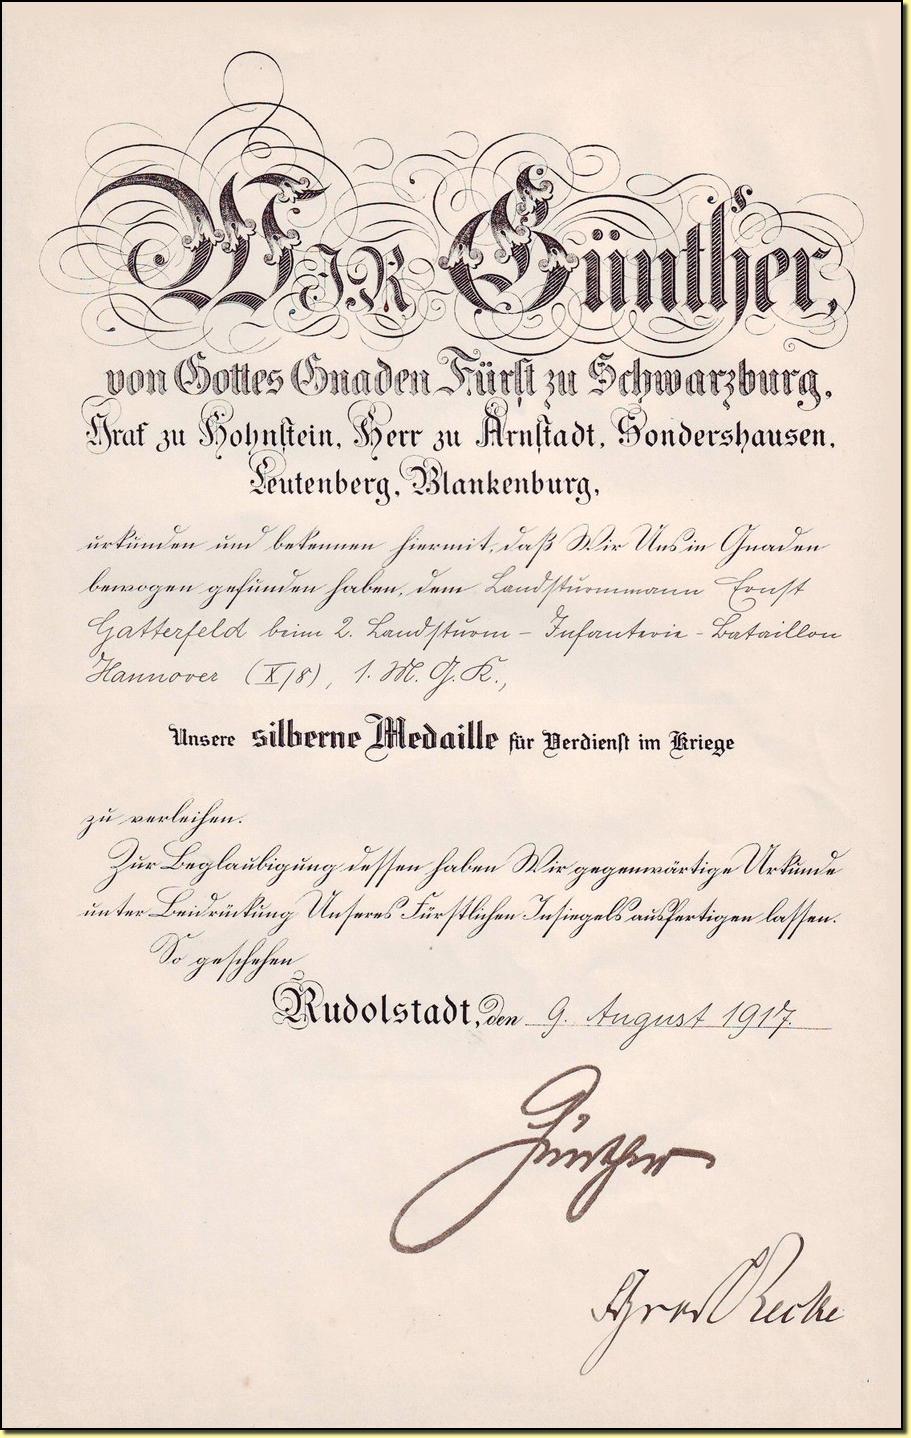 Wir Günther,
von Gottes Gnaden Fürst zu Schwarzburg,
Graf zu Hohnstein, Herr zu Arnstadt, Sondershausen,
Leutenberg, Blankenburg,
urkunden und bekennen hiermit, daß Wir Uns in Gnaden
bewogen gefunden haben, dem Landsturmmann Ernst
Gatterfeld beim 2. Landsturm-Infanterie-Bataillon
Hannover (X/8), 1. M. G. K.,
Unsere silberne Medaille für Verdienst im Kriege
zu verleihen.
Zur Beglaubigung dessen haben Wir gegenwärtige Urkunde
unter Beidrückung Unseres Fürstlichen Insiegels ausfertigen lassen.
So geschehen
Rudolstadt, den 9. August 1917.
Günther
Recke